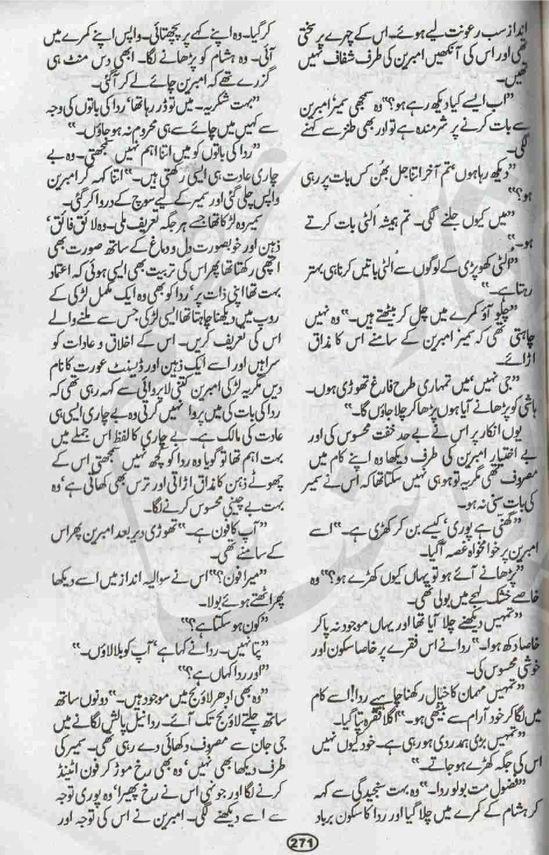 انداز سب رعونت لیے ہوئے۔ اس کے چہرے پر سختی
تھی اور اس کی آنکھیں امبرین کی طرف شفاف نہیں
تھیں۔
”اب ایسے کیا دیکھ رہے ہو؟“ وہ سمجھی سمیر امبرین
سے بات کرنے پر شرمندہ ہے تو اور بھی طنز سے کہنے
لگی۔
”دیکھ رہا ہوں، تم آخر اتنا جل بھن کس بات پر رہی
ہو؟“
”میں کیوں جلنے لگی۔ تم ہمیشہ الٹی بات کرتے
ہو۔“
”الٹی کھوپڑی کے لوگوں سے الٹی باتیں کرنا ہی بہتر
رہتا ہے۔“
”چلو آؤ کمرے میں چل کر بیٹھتے ہیں۔“ وہ نہیں
چاہتی تھی کہ سمیر امبرین کے سامنے اس کا مذاق
اڑائے۔
”جی نہیں، میں تمہاری طرح فارغ تھوڑی ہوں۔
ہاشی کو پڑھانے آیا ہوں پڑھا کر چلا جاؤں گا۔“
یوں انکار پر اس نے بے حد خفت محسوس کی اور
بے اختیار امبرین کی طرف دیکھا وہ اپنے کام میں
مصروف تھی مگر یہ تو ہو ہی نہیں سکتا تھا کہ اس نے سمیر
کی بات سنی نہ ہو۔
”گھنی ہے پوری، کیسے بن کر کھڑی ہے۔“ اسے
امبرین پر خوامخواہ غصہ آ گیا۔
”پڑھانے آئے ہو تو یہاں کیوں کھڑے ہو؟“ وہ
خاصے خشک لہجے میں بولی تھی۔
”تمہیں دیکھنے چلا آیا تھا اور یہاں موجود نہ پا کر
خاصا دکھ ہوا۔“ ردا نے اس فقرے پر خاصا سکون اور
خوشی محسوس کی۔
”تمہیں مہمان کا خیال رکھنا چاہیے ردا! اسے کام
میں لگا کر خود آرام سے بیٹھی ہو۔“ اگلا فقرہ تپا گیا۔
”تمہیں بڑی ہمدردی ہو رہی ہے۔ خود کیوں نہیں
اس کی جگہ کھڑے ہو جاتے۔“
”فضول مت بولو ردا۔“ وہ بہت سنجیدگی سے کہہ
کر ہشام کے کمرے میں چلا گیا اور ردا کا سکون برباد
کر گیا۔ وہ اپنے کہے پر پچھتائی۔ واپس اپنے کمرے میں
آئی۔ وہ ہشام کو پڑھانے لگا۔ ابھی دس منٹ ہی
گزرے تھے کہ امبرین چائے لے کر آ گئی۔
”بہت شکریہ۔ میں تو ڈر رہا تھا، ردا کی باتوں کی وجہ
سے کہیں میں چائے سے ہی محروم نہ ہو جاؤں۔“
”ردا کی باتوں کو میں اتنا اہم نہیں سمجھتی۔ وہ بے
چاری عادت ہی ایسی رکھتی ہیں۔“ اتنا کہہ کر امبرین
واپس چلی گئی اور سمیر کے لیے سوچ کے در وا کر گئی۔
سمیر وہ لڑکا تھا جسے ہر جگہ تعریف ملی۔ وہ لائق فائق،
ذہین اور خوبصورت دل و دماغ کے ساتھ صورت بھی
اچھی رکھتا تھا پھر اس کی تربیت بھی ایسی ہوئی کہ اعتماد
بہت تھا اپنی ذات پر، ردا کو بھی وہ ایک مکمل لڑکی کے
روپ میں دیکھنا چاہتا تھا ایسی لڑکی جس سے ملنے والے
اس کی تعریف کریں۔ اس کے اخلاق و عادات کو
سراہیں اور اسے ایک ذہین اور ڈیسنٹ عورت کا نام
دیں مگر یہ لڑکی امبرین کتنی لاپروائی سے کہہ رہی تھی کہ
ردا کی بات کی میں پروا نہیں کرتی وہ بے چاری ایسی ہی
عادت کی مالک ہے۔ بے چاری کا لفظ اس جملے میں
بہت اہم تھا تو گویا وہ ردا کو کچھ نہیں سمجھتی اس کے
چھوٹے ذہن کا مذاق اڑاتی اور ترس بھی کھاتی ہے، وہ
بہت بے چینی محسوس کرنے لگا۔
”آپ کا فون ہے۔“ تھوڑی دیر بعد امبرین پھر اس
کے سامنے تھی۔
”میرا فون؟“ اس نے سوالیہ انداز میں اسے دیکھا
پھر اٹھتے ہوئے بولا۔
”کون ہو سکتا ہے؟“
”پتا نہیں۔ ردا نے کہا ہے، آپ کو بلا لاؤں۔“
”اور ردا کہاں ہے؟“
”وہ بھی ادھر لاؤنج میں موجود ہیں۔“ دونوں ساتھ
ساتھ چلتے لاؤنج تک آئے۔ ردا نیل پالش لگانے میں
جی جان سے مصروف دکھائی دے رہی تھی۔ سمیر کی
طرف دیکھا بھی نہیں، وہ بھی رخ موڑ کر فون اٹینڈ
کرنے لگا اور جونہی اس نے رخ پھیرا، وہ پوری توجہ
سے اسے دیکھنے لگی۔ امبرین نے اس کی توجہ اور
271